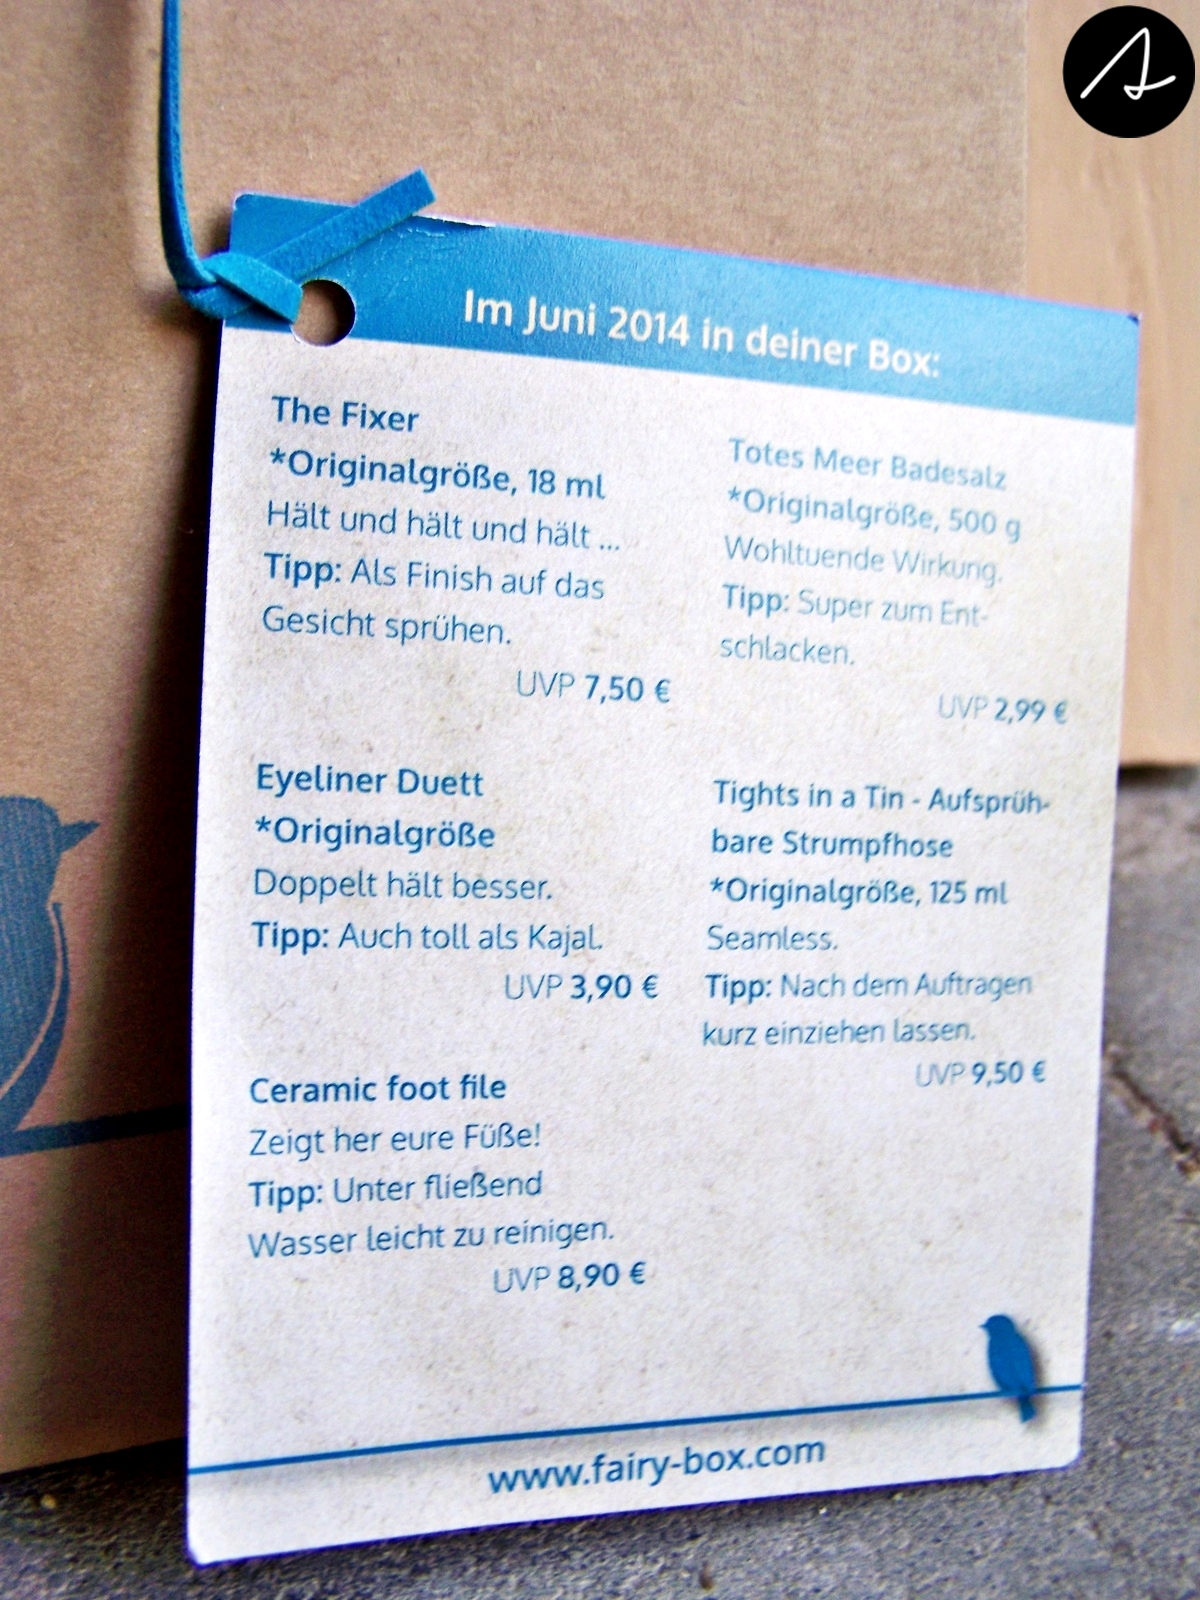 Im Juni 2014 in deiner Box:
The Fixer
*Originalgröße, 18 ml
Hält und hält und hält ...
Tipp: Als Finish auf das
Gesicht sprühen.
UVP 7,50 €
Eyeliner Duett
*Originalgröße
Doppelt hält besser.
Tipp: Auch toll als Kajal.
UVP 3,90 €
Ceramic foot file
Zeigt her eure Füße!
Tipp: Unter fließend
Wasser leicht zu reinigen.
UVP 8,90 €
Totes Meer Badesalz
*Originalgröße, 500 g
Wohltuende Wirkung.
Tipp: Super zum Ent-
schlacken.
UVP 2,99 €
Tights in a Tin - Aufsprüh-
bare Strumpfhose
*Originalgröße, 125 ml
Seamless.
Tipp: Nach dem Auftragen
kurz einziehen lassen.
UVP 9,50 €
www.fairy-box.com